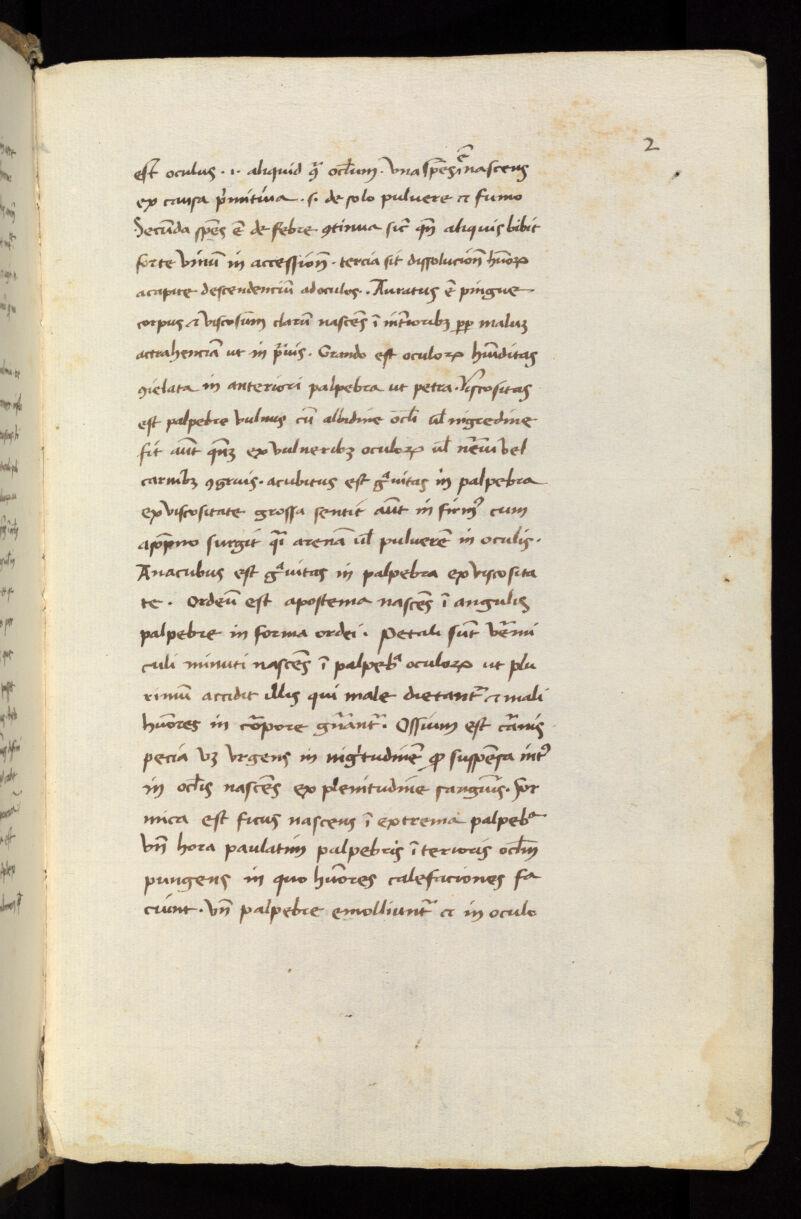 2
est oculus · i · aliquid q̃ ocl̃um · Vna spẽs ẽ nascens
ex causa p̃mitiua · s · de solo puluere et fumo
Secũda spẽs ẽ de febre ꝯtinua sic̃ qñ aliquis bibit
forte vinũ in accessioñ · tercia fit dissolucioñ hũoꝝ
a capite descendenciũ ad oculos · Auratus ẽ pingue
corpus et viscosum clarũ nascẽs ĩ int̃ioribꝫ pp̃ maluꝫ
actrahenciã ut in p̃uis · Grando est oculoꝝ hũiditas
ꝯielata in anteriori palpebra ut petra · Viscositas
est palpebre vulnus cũ albidine ocl̃i ul̃ nigredine
fit aũt qñꝫ ex vulneribꝫ oculoꝝ ul̃ ñẽui vel
carnibꝫ ꝯgruis · acubitus est g̃uitas in palpebra
ex viscositate grossa sentit aũt infirm9 cum
a sõpno surgit q̃i arenã ul̃ puluerẽ in oculis ·
Anacubus est g̃uitas in palpebra ex viscosita
te · Ordeũ est apostema nascẽs ĩ angulis
palpebre in forma ordei · Petali sũt vẽmi
culi minuti nascẽs ĩ palpeb̃ oculoꝝ ut plu
rimũ accidit illis qui male dietant̃ et mali
hũores in cõpore gñant̃ · Ossium est cãnis
pecia uꝫ vrgens in nig̃tudinẽ ꝓ suspẽsa int̃
in ocl̃is nascẽs ex plenitudine sanguĩs · For
mica est ficus nascens ĩ extrema palpeb̃
vñ hora paulatim palpebris ĩterioris ocl̃m
pungens in quo hũores calefaciones fa
ciunt · vñ palpebre emolliunt̃ et in oculo
2